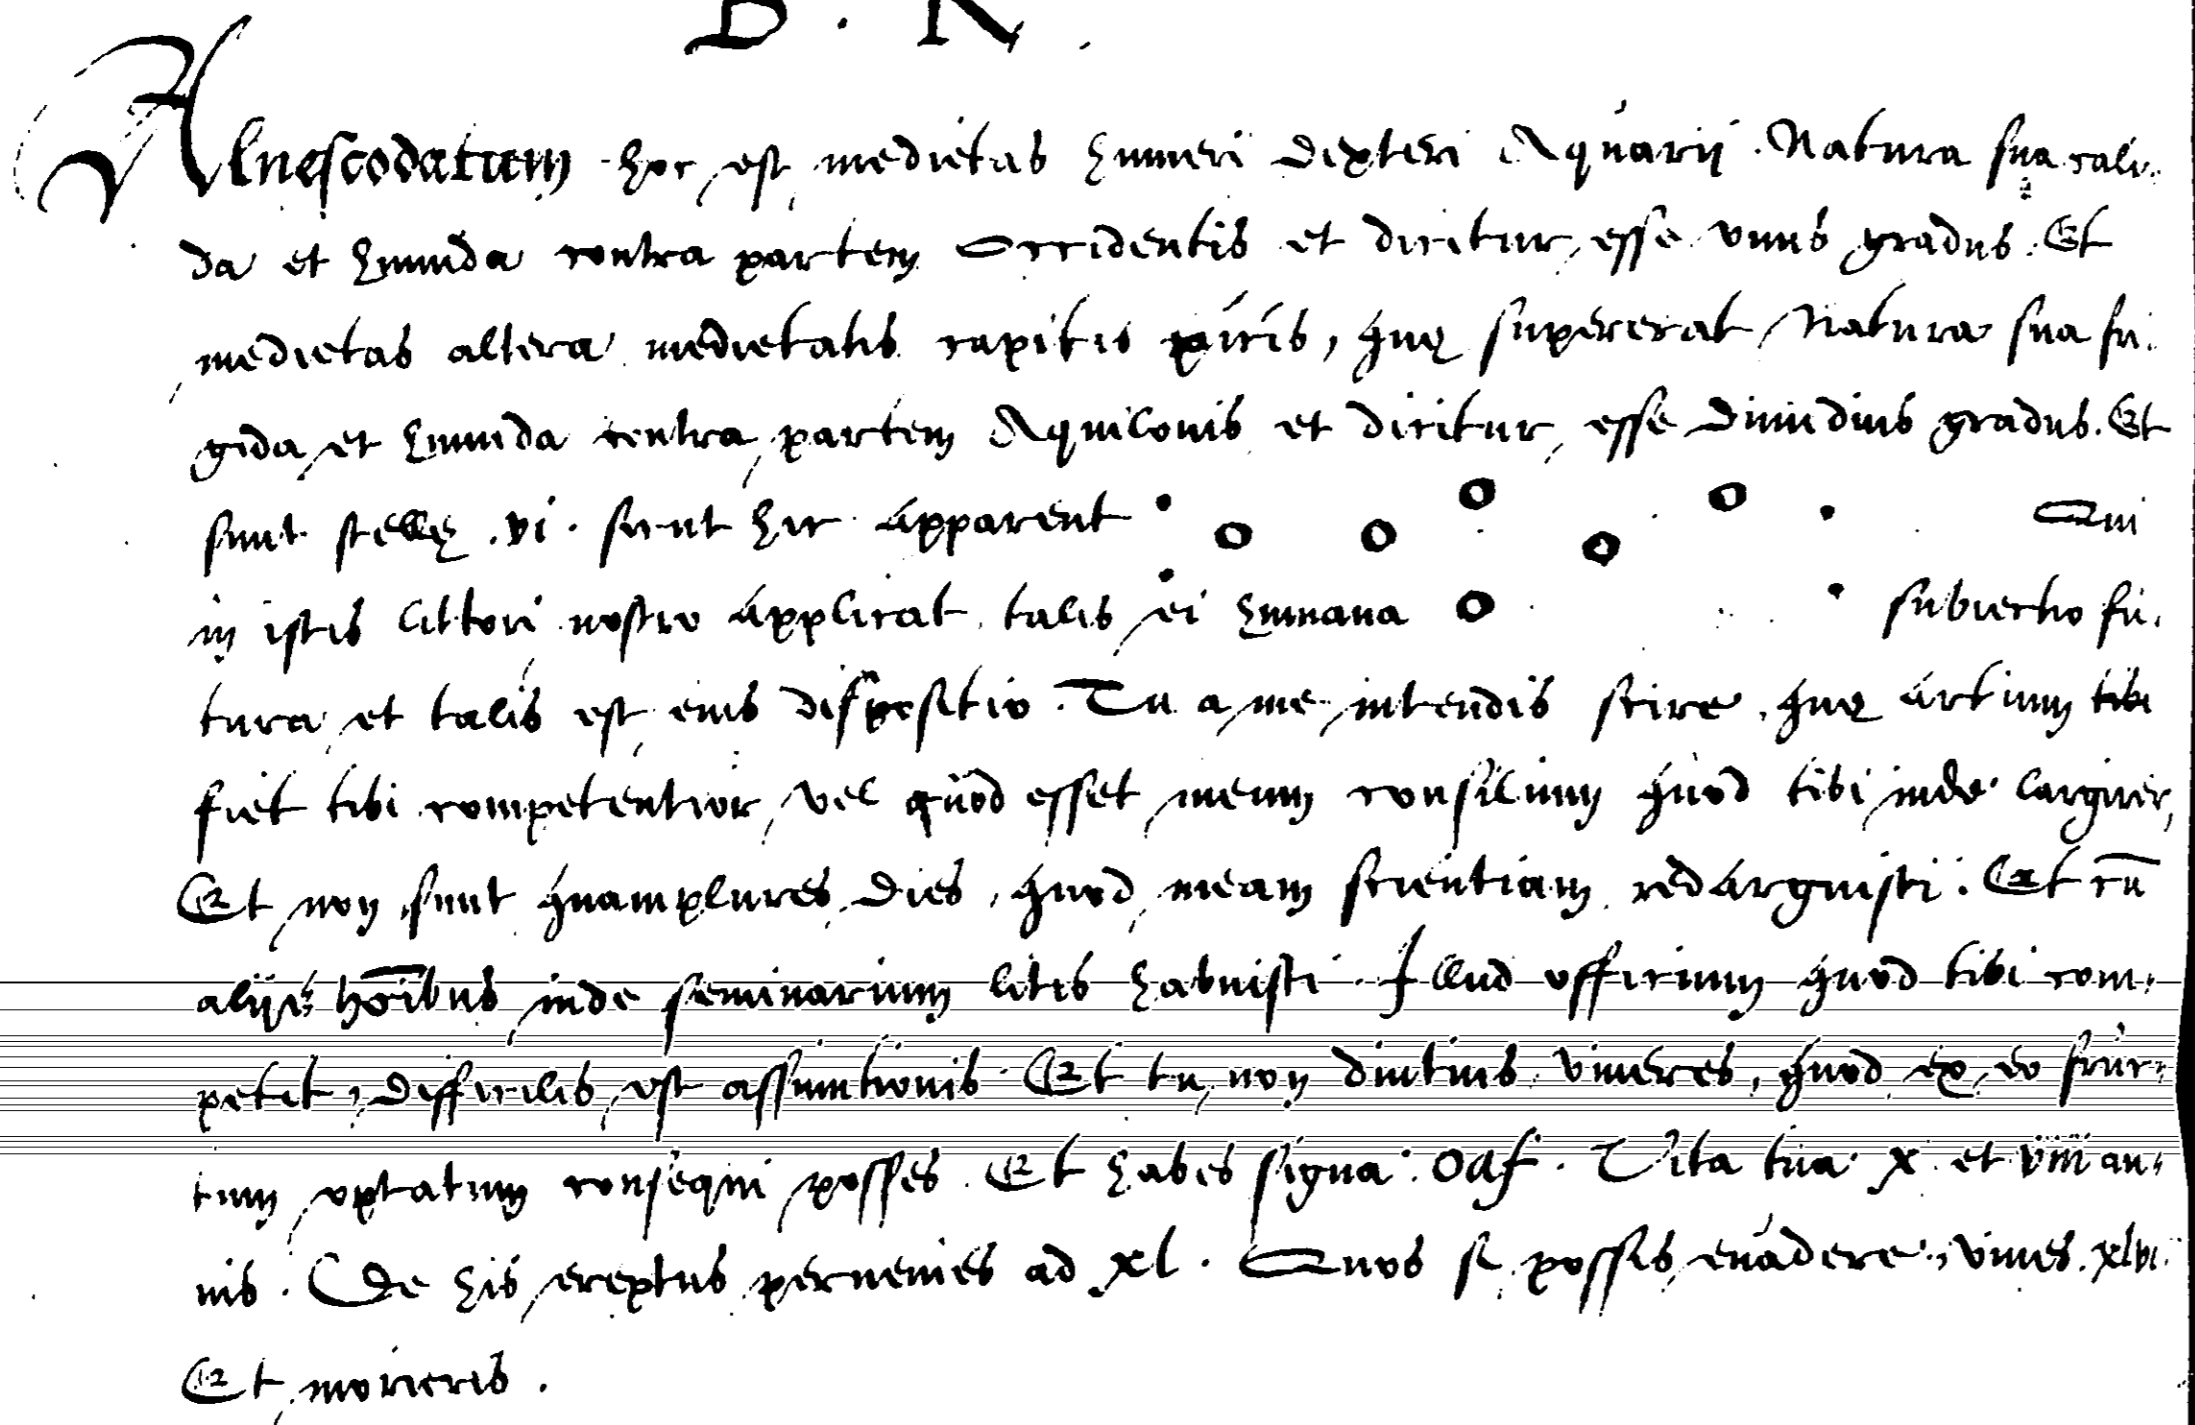 B . N .
Alnescodatum hoc est medietas humeri dexteri Aquarii. Natura sua cali-
da et humida contra partem Occidentis et dicitur esse unus gradus. Et
medietas altera medietatis capitis piscis, quę supererat Natura sua fri-
gida et humida contra partem Aquilonis et dicitur esse dimidius gradus. Et
sunt stellę .vi. sicut hic apparent Qui
in istis littori nostro applicat talis ei humana subiectio fu-
tura et talis est eius dispositio. Tu a me intendis scire, quę artium tibi
fiet tibi competentior vel quod esset meum consilium quod tibi inde largirer,
Et non sunt quamplures dies, quod meam scientiam redarguisti. Et cū
alijs hōibus inde seminarium litis habuisti. Illud officium quod tibi com-
petit, difficilis est assumtionis. Et tu non diutius viveres, quod ex eo fruc-
tum optatum consequi posses. Et habes signa: oaf. Vita tua x et viii an-
nis. De his ereptus pervenies ad xl. Quos si possis evadere, vives. xlvi.
Et morieris.